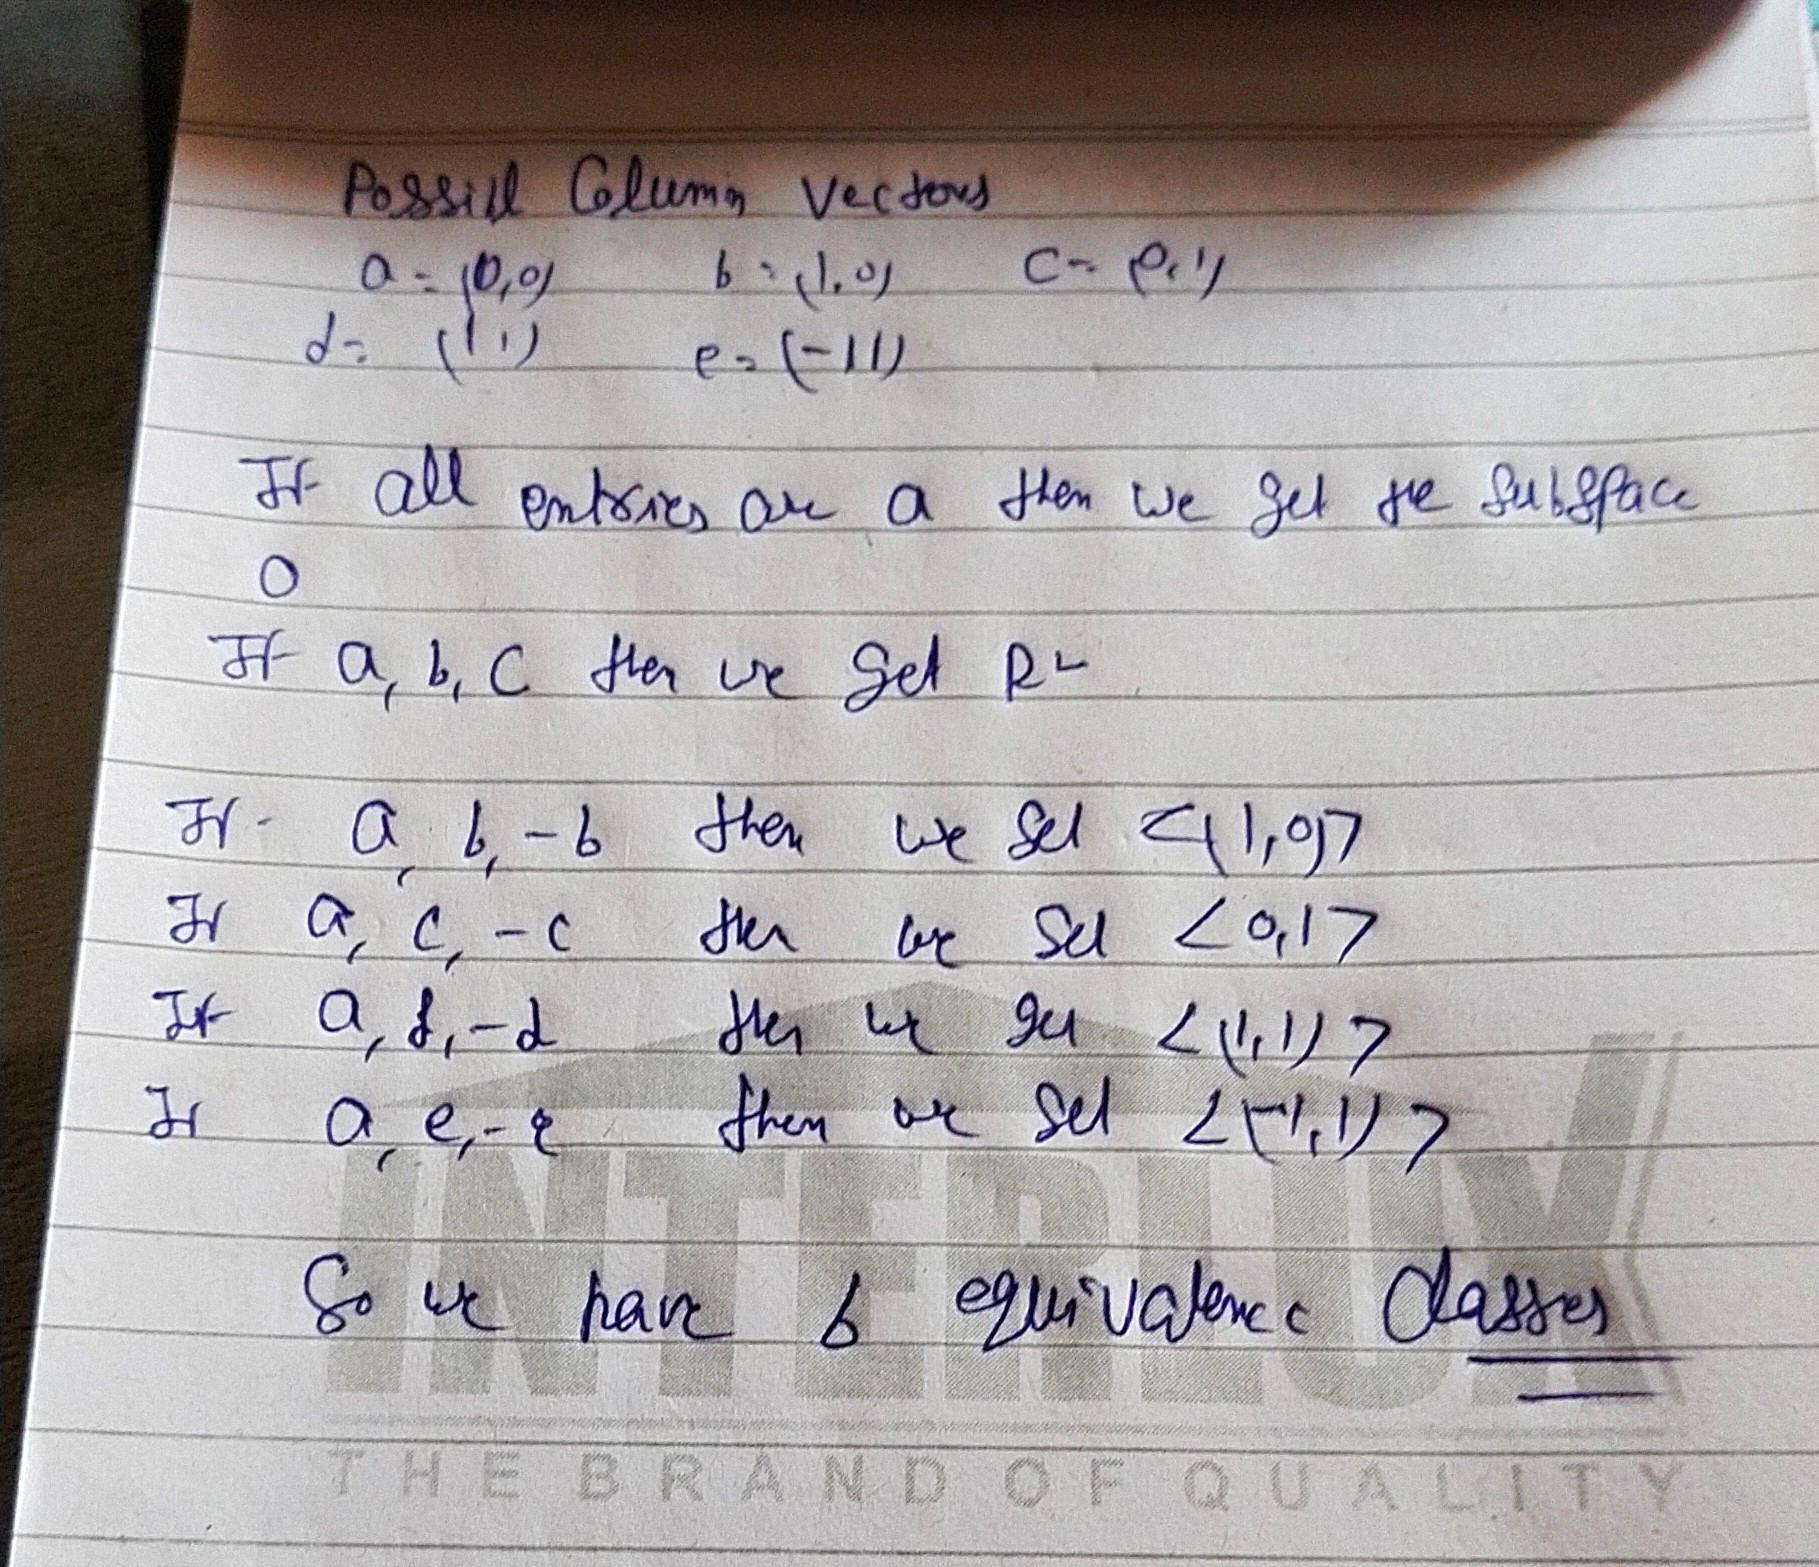 Possill Column Vectors
a = (0,0) b = (1,0) c = (0,1)
d = (1 1) e = (-1 1)
If all entries are a then we get the subspace
0
If a, b, c then we get R²
If a, b, -b then we get <(1,0)>
If a, c, -c then we get <0,1>
If a, d, -d then we get <(1,1)>
If a, e, -e then we get <(-1,1)>
So we have 6 equivalence classes
INTERLUX
THE BRAND OF QUALITY